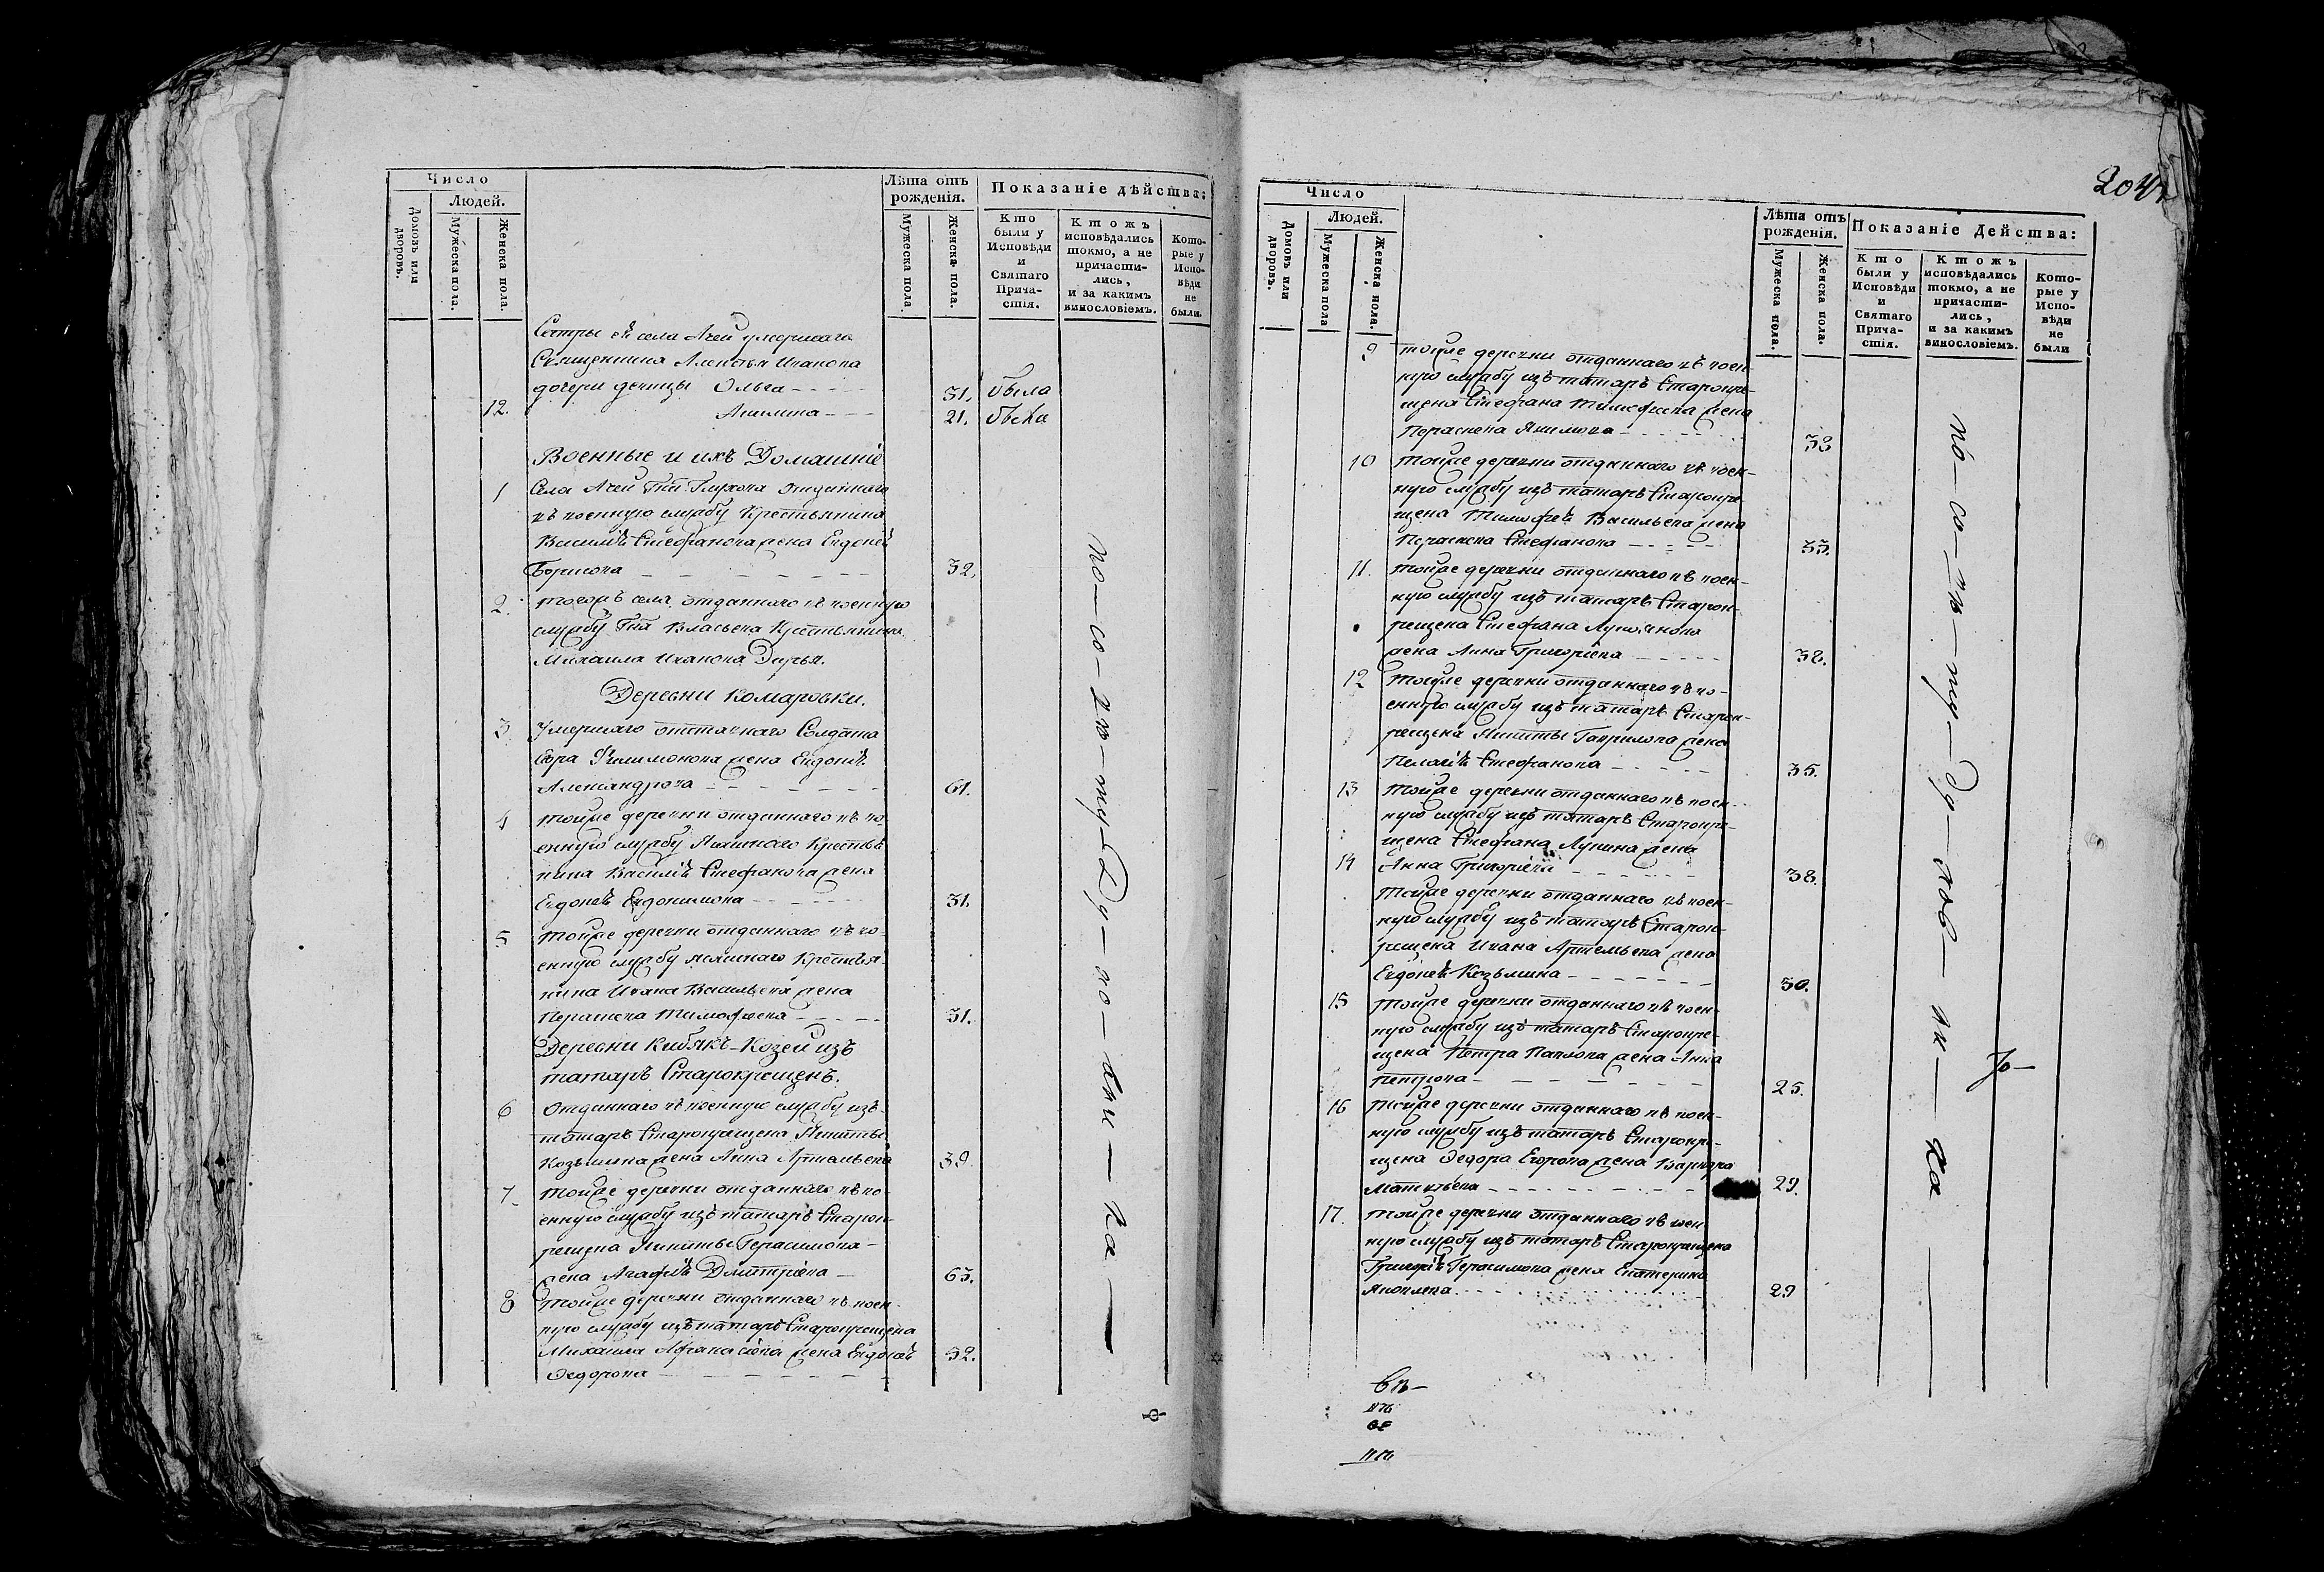 Число
Людей.
Домовъ или дворовъ.
Мужеска пола.
Женска пола.
Лѣта отъ рожденія.
Мужеска пола
Женска пола.
Показаніе дѣйства:
Кто были у Исповѣди и Святаго Прича-стія.
Ктожъ исповѣдались токмо, а не причасти-лись, и за какимъ винословіемъ.
Кото-рые у Испо-вѣди не были.
Сестры села Ачей умершаго
Священника Алексѣя Иванова
дочери девицы Ольга 31. была
12. Акилина 21. была
Военные и ихъ Домашніе
1 Села Ачей отданнаго
въ военную службу Крестьянина
Василія Стефанова жена Евдокія
Борисова 32.
2. тогожъ села отданнаго въ военную
службу Власьева Крестьянина
Михаила Иванова Дарья.
Деревни Комаровки.
3 Умершаго отставнаго Солдата
Филимонова жена Евдокія
Александрова 61.
4 тойже деревни отданнаго въ во-
енную службу Ясашнаго Крестья
нина Василія Стефанова жена
Евдокія Евдокимова 31.
5 тойже деревни отданнаго въ во-
енную службу ясашнаго Крестья-
нина Ивана Васильева жена
Параскева Тимофеева 31.
Деревни Кибякъ-Козей изъ
татаръ Старокрещенъ.
6 отданнаго въ военную службу изъ
татаръ Старокрещена Никиты
Козьмина жена Анна Артемьева 39.
7. тойже деревни отданнаго въ во-
енную службу изъ татаръ Старок-
рещена Никиты Герасимова
жена Агафія Дмитріева 65.
8 тойже деревни отданнаго въ воен-
ную службу изъ татаръ Старокрещена
Михаила Афанасіева жена Евдокія 52.
Федорова
204
Число
Людей.
Домовъ или дворовъ.
Мужеска пола
Женска пола.
Лѣта отъ рожденія.
Мужеска пола.
Женска пола.
Показаніе Действа:
Кто были у Исповѣди и Святаго Прича-стія.
Ктожъ исповѣдались токмо, а не причасти-лись, и за какимъ винословіемъ.
Кото-рые у Испо-вѣди не были
9 тойже деревни отданнаго въ воен-
ную службу изъ татаръ Старокре-
щена Стефана Тимофеева жена
Параскева Якимова 38
10 тойже деревни отданнаго въ воен-
ную службу изъ татаръ Старокре-
щена Тимофея Васильева жена
Параскева Стефанова 35.
11. тойже деревни отданнаго въ воен-
ную службу изъ татаръ Старок-
рещена Стефана Лукіянова
жена Анна Григорьева 38.
12 тойже деревни отданнаго въ во-
енную службу изъ татаръ Старок-
рещена Никиты Гаврилова жена
Пелагія Стефанова 35.
13 тойже деревни отданнаго въ воен-
ную службу изъ татаръ Старокре-
щена Стефана Лукина жена
14 Анна Григорьева 38.
тойже деревни отданнаго въ воен-
ную службу изъ татаръ Старок-
рещена Ивана Артемьева жена
Евдокія Козьмина 30.
15 тойже деревни отданнаго въ воен-
ную службу изъ татаръ Старокре-
щена Петра Павлова жена Анна
Петрова 25.
16 тойже деревни отданнаго въ воен-
ную службу изъ татаръ Старокре-
щена Федора Егорова жена Варвара
Матвѣева 29.
17. тойже деревни отданнаго въ воен
ную службу изъ татаръ Старокрещена
Григорія Герасимова жена Екатерина
Яковлева 29